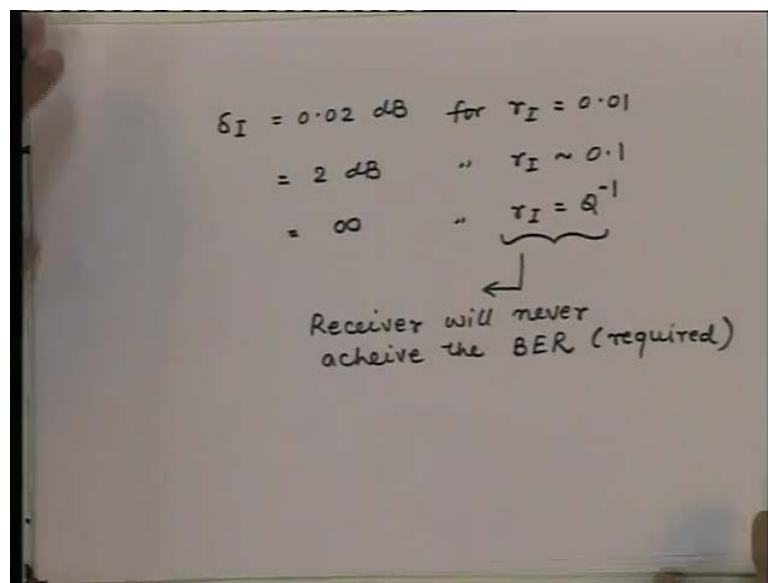 δI = 0.02 dB for rI = 0.01
= 2 dB " rI ~ 0.1
= ∞ " rI = Q⁻¹
Receiver will never
acheive the BER (required)